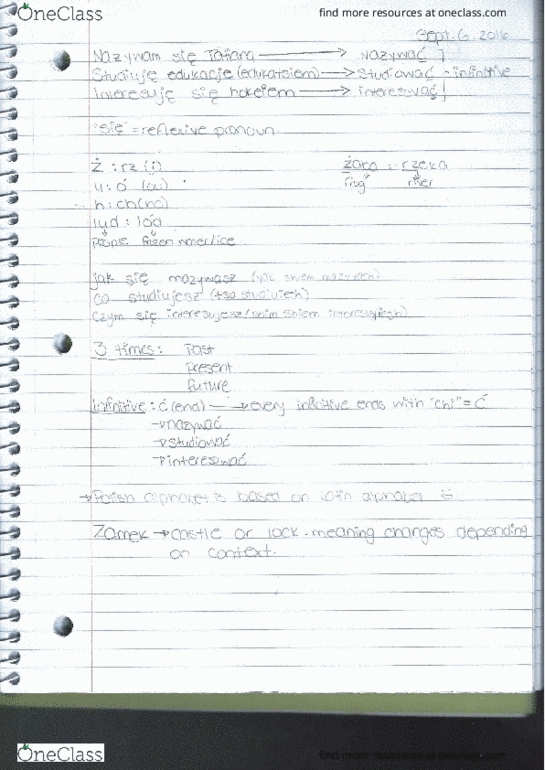 OneClass
find more resources at oneclass.com
Sept. 6, 2016
Nazywam się → nazywać
Studiuję edukacje → Studiować - infinitive
Interesuję się hokeiem → interesować
"się" = reflexive pronoun
Ż : rz
u : ó
h : ch
żaba : rzeka
frog river
lud : lód
people frozen water/ice
jak się nazywasz
co studiujesz
czym się interesujesz
3 times: Past
Present
Future
Infinitive : ć (end) → every infinitive ends with "chi" = ć
→ nazywać
→ studiować
→ interesować
→ Polish alphabet is based on latin alphabet
Zamek → castle or lock. meaning changes depending
on context.
OneClass
find more resources at oneclass.com